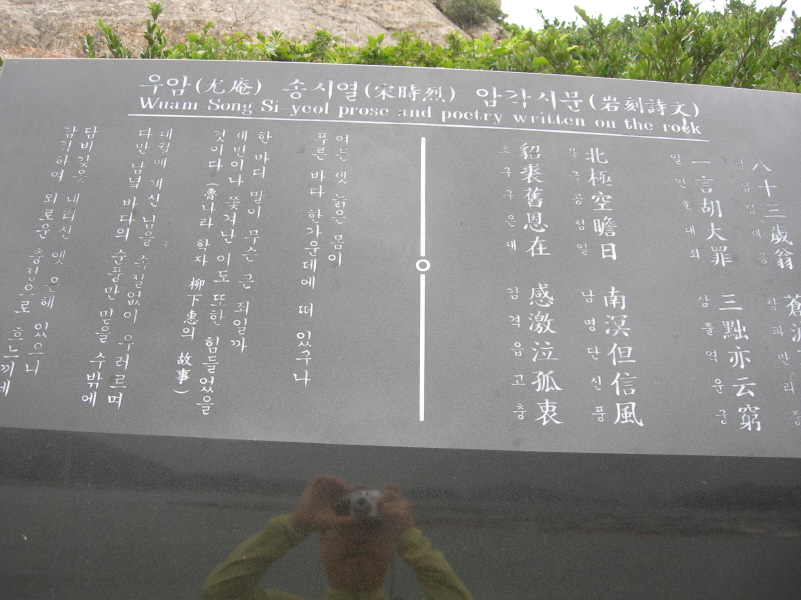 우암(尤庵) 송시열(宋時烈) 암각시문(岩刻詩文)
Wuam Song Si-yeol prose and poetry written on the rock
八十三歲翁 蒼波
팔십삼세옹 창파만리중
一言胡大罪 三黜亦云窮
일언호대죄 삼출역운궁
北極空瞻日 南溟但信風
북극공첨일 남명단신풍
貂裘舊恩在 感激泣孤衷
초구구은재 감격읍고충
여든 셋 늙은 몸이
푸른 바다 한가운데에 떠 있구나
한 마디 말이 무슨 큰 죄일까
세번이나 쫓겨난 이도 또한 힘들었을
것이다 (魯나라 학자 柳下惠의 故事)
대궐에 계신 님을 속절없이 우러르며
다만 남녘 바다의 순풍만 믿을 수밖에
담비갖옷 내리신 옛 은혜 있으니
감격하여 외로운 충정으로 흐느끼네